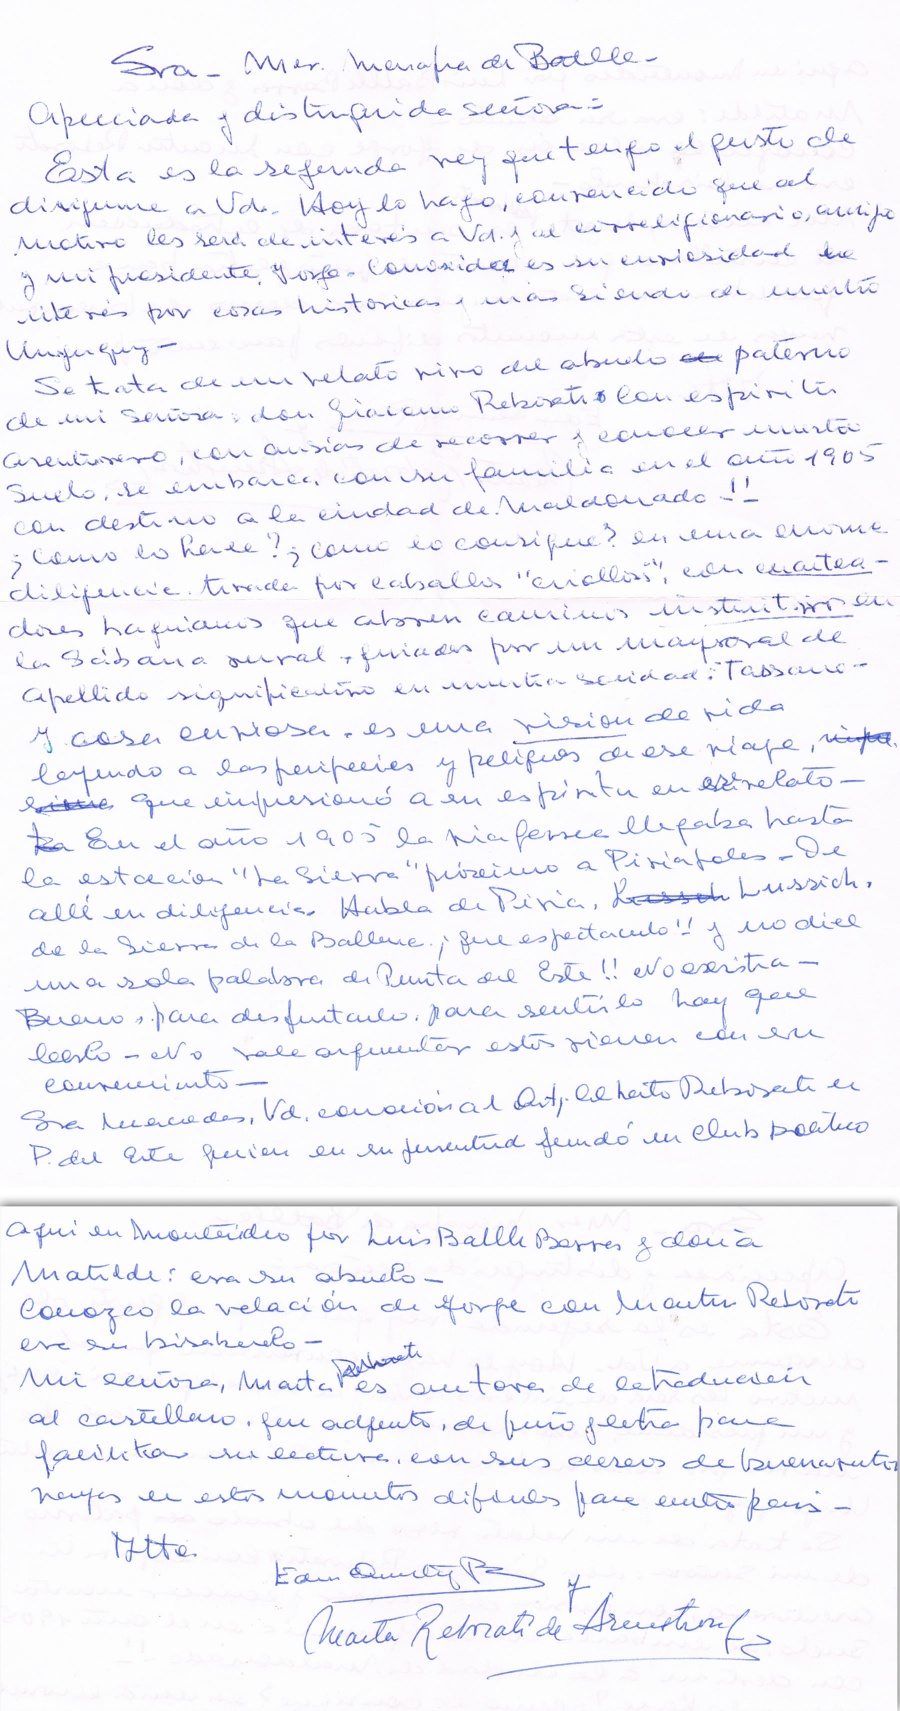 Sra - Mer. Menafra de Batlle -
Apreciada y distinguida señora =
Esta es la segunda vez que tengo el gusto de
dirigirme a Vd. Hoy lo hago, convencido que el
motivo les será de interés a Vd. y al correligionario, amigo
y mi presidente, Jorge. Conocida es su curiosidad e
interés por cosas históricas y más siendo de nuestro
Uruguay -
Se trata de un relato vivo del abuelo paterno
de mi señora: don Giacomo Reborati. Con espíritu
aventurero, con ansias de recorrer y conocer nuestro
suelo, se embarca con su familia en el año 1905
con destino a la ciudad de Maldonado!!
¿Como lo hace? ¿Como lo consigue? en una enorme
diligencia tirada por caballos "criollos", con cuartea-
dores baquianos que abren caminos instintivos en
la Sábana rural, guiados por un mayoral de
apellido significativo en nuestra sociedad: Tassano -
Y cosa curiosa, es una vision de vida
leyendo a las peripecias y peligros de ese viaje,
que impresionó a su espíritu en ese relato -
En el año 1905 la via ferrea llegaba hasta
la estacion "La Sierra" próximo a Piriápoles - De
allí en diligencia. Habla de Piria, Lussich,
de la Sierra de la Ballena, ¡que espectaculo!! y no dice
una sola palabra de Punta del Este!! No existia -
Bueno, para disfrutarlo, para sentirlo hay que
leerlo - No vale argumentar estos vienen con su
convencimiento -
Sra Mercedes, Vd. conoció al Arq. Alberto Reborati en
P. del Este quien en su juventud fundó un Club politico
aqui en Montevideo por Luis Batlle Berres y doña
Matilde: era su abuelo -
Conozco la relación de Jorge con Martin Reborati
era su bisabuelo -
Mi señora, Marta Reborati es autora de la traducción
al castellano, que adjunto, de puño y letra para
facilitar su lectura, con sus deseos de buenaventu
en estos momentos dificiles para nuestro pais -
Atte.
y
Marta Reborati de Armstrong